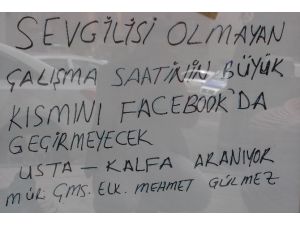 SEVGİLİSİ OLMAYAN
ÇALIŞMA SAATİNİN BÜYÜK
KISMINI FACEBOOK'DA
GEÇİRMEYECEK
USTA – KALFA ARANIYOR
MÜR ÇMS. ELK. MEHMET GÜLMEZ